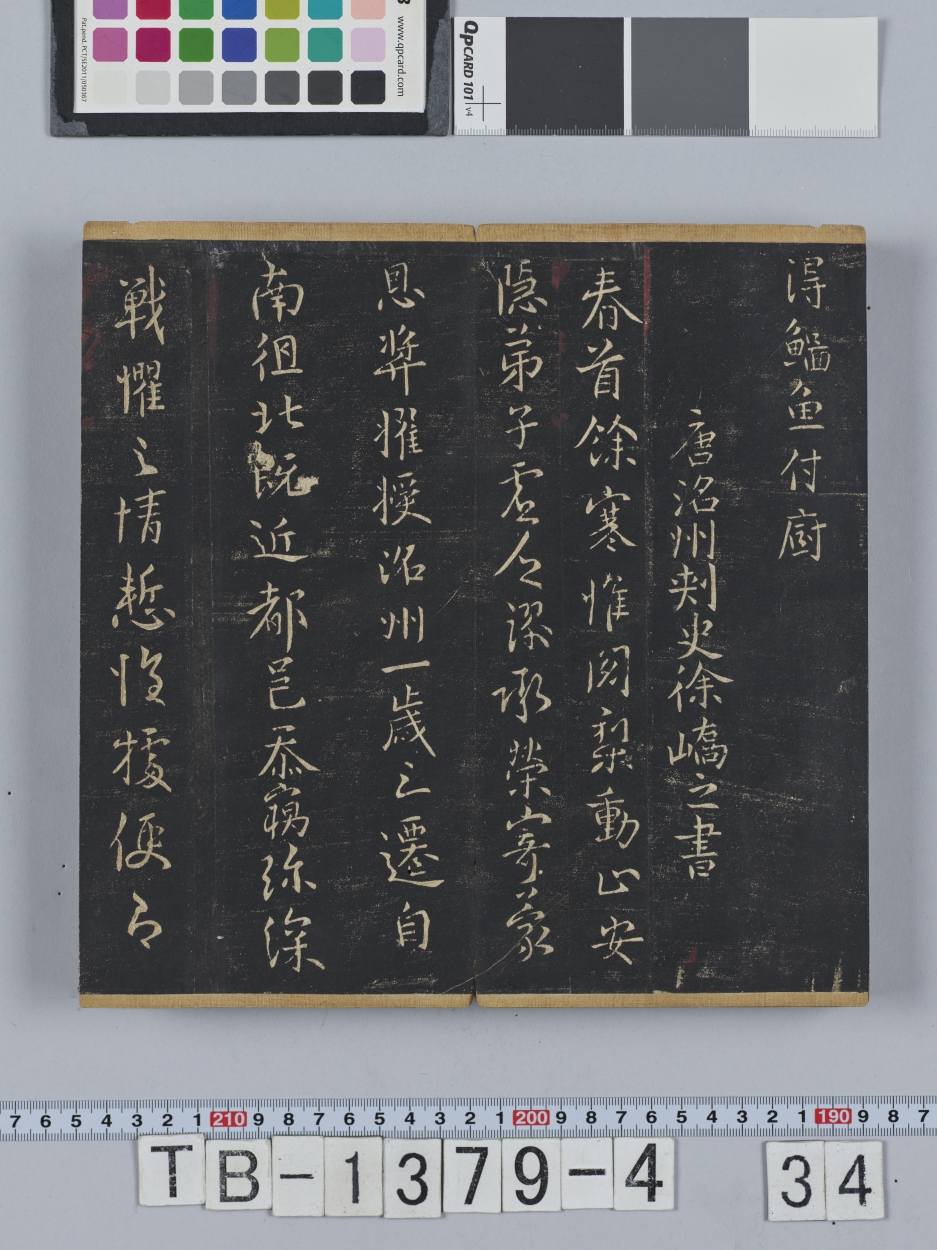 Pat.pend. PCT/SE2011/050367
www.qpcard.com
QPCARD 101 v4
得魚付廚
唐洺州刺史徐嶠之書
春首餘寒惟闍梨動止安
隱弟子虛乏謬承榮寄蒙
恩奬擢授洺州一歲三遷自
南徂北既近都邑忝竊弥深
戰懼之情慙惶便即
7 6 5 4 3 2 1 210 9 8 7 6 5 4 3 2 1 200 9 8 7 6 5 4 3 2 1 190 9 8 7
TB-1379-4 34